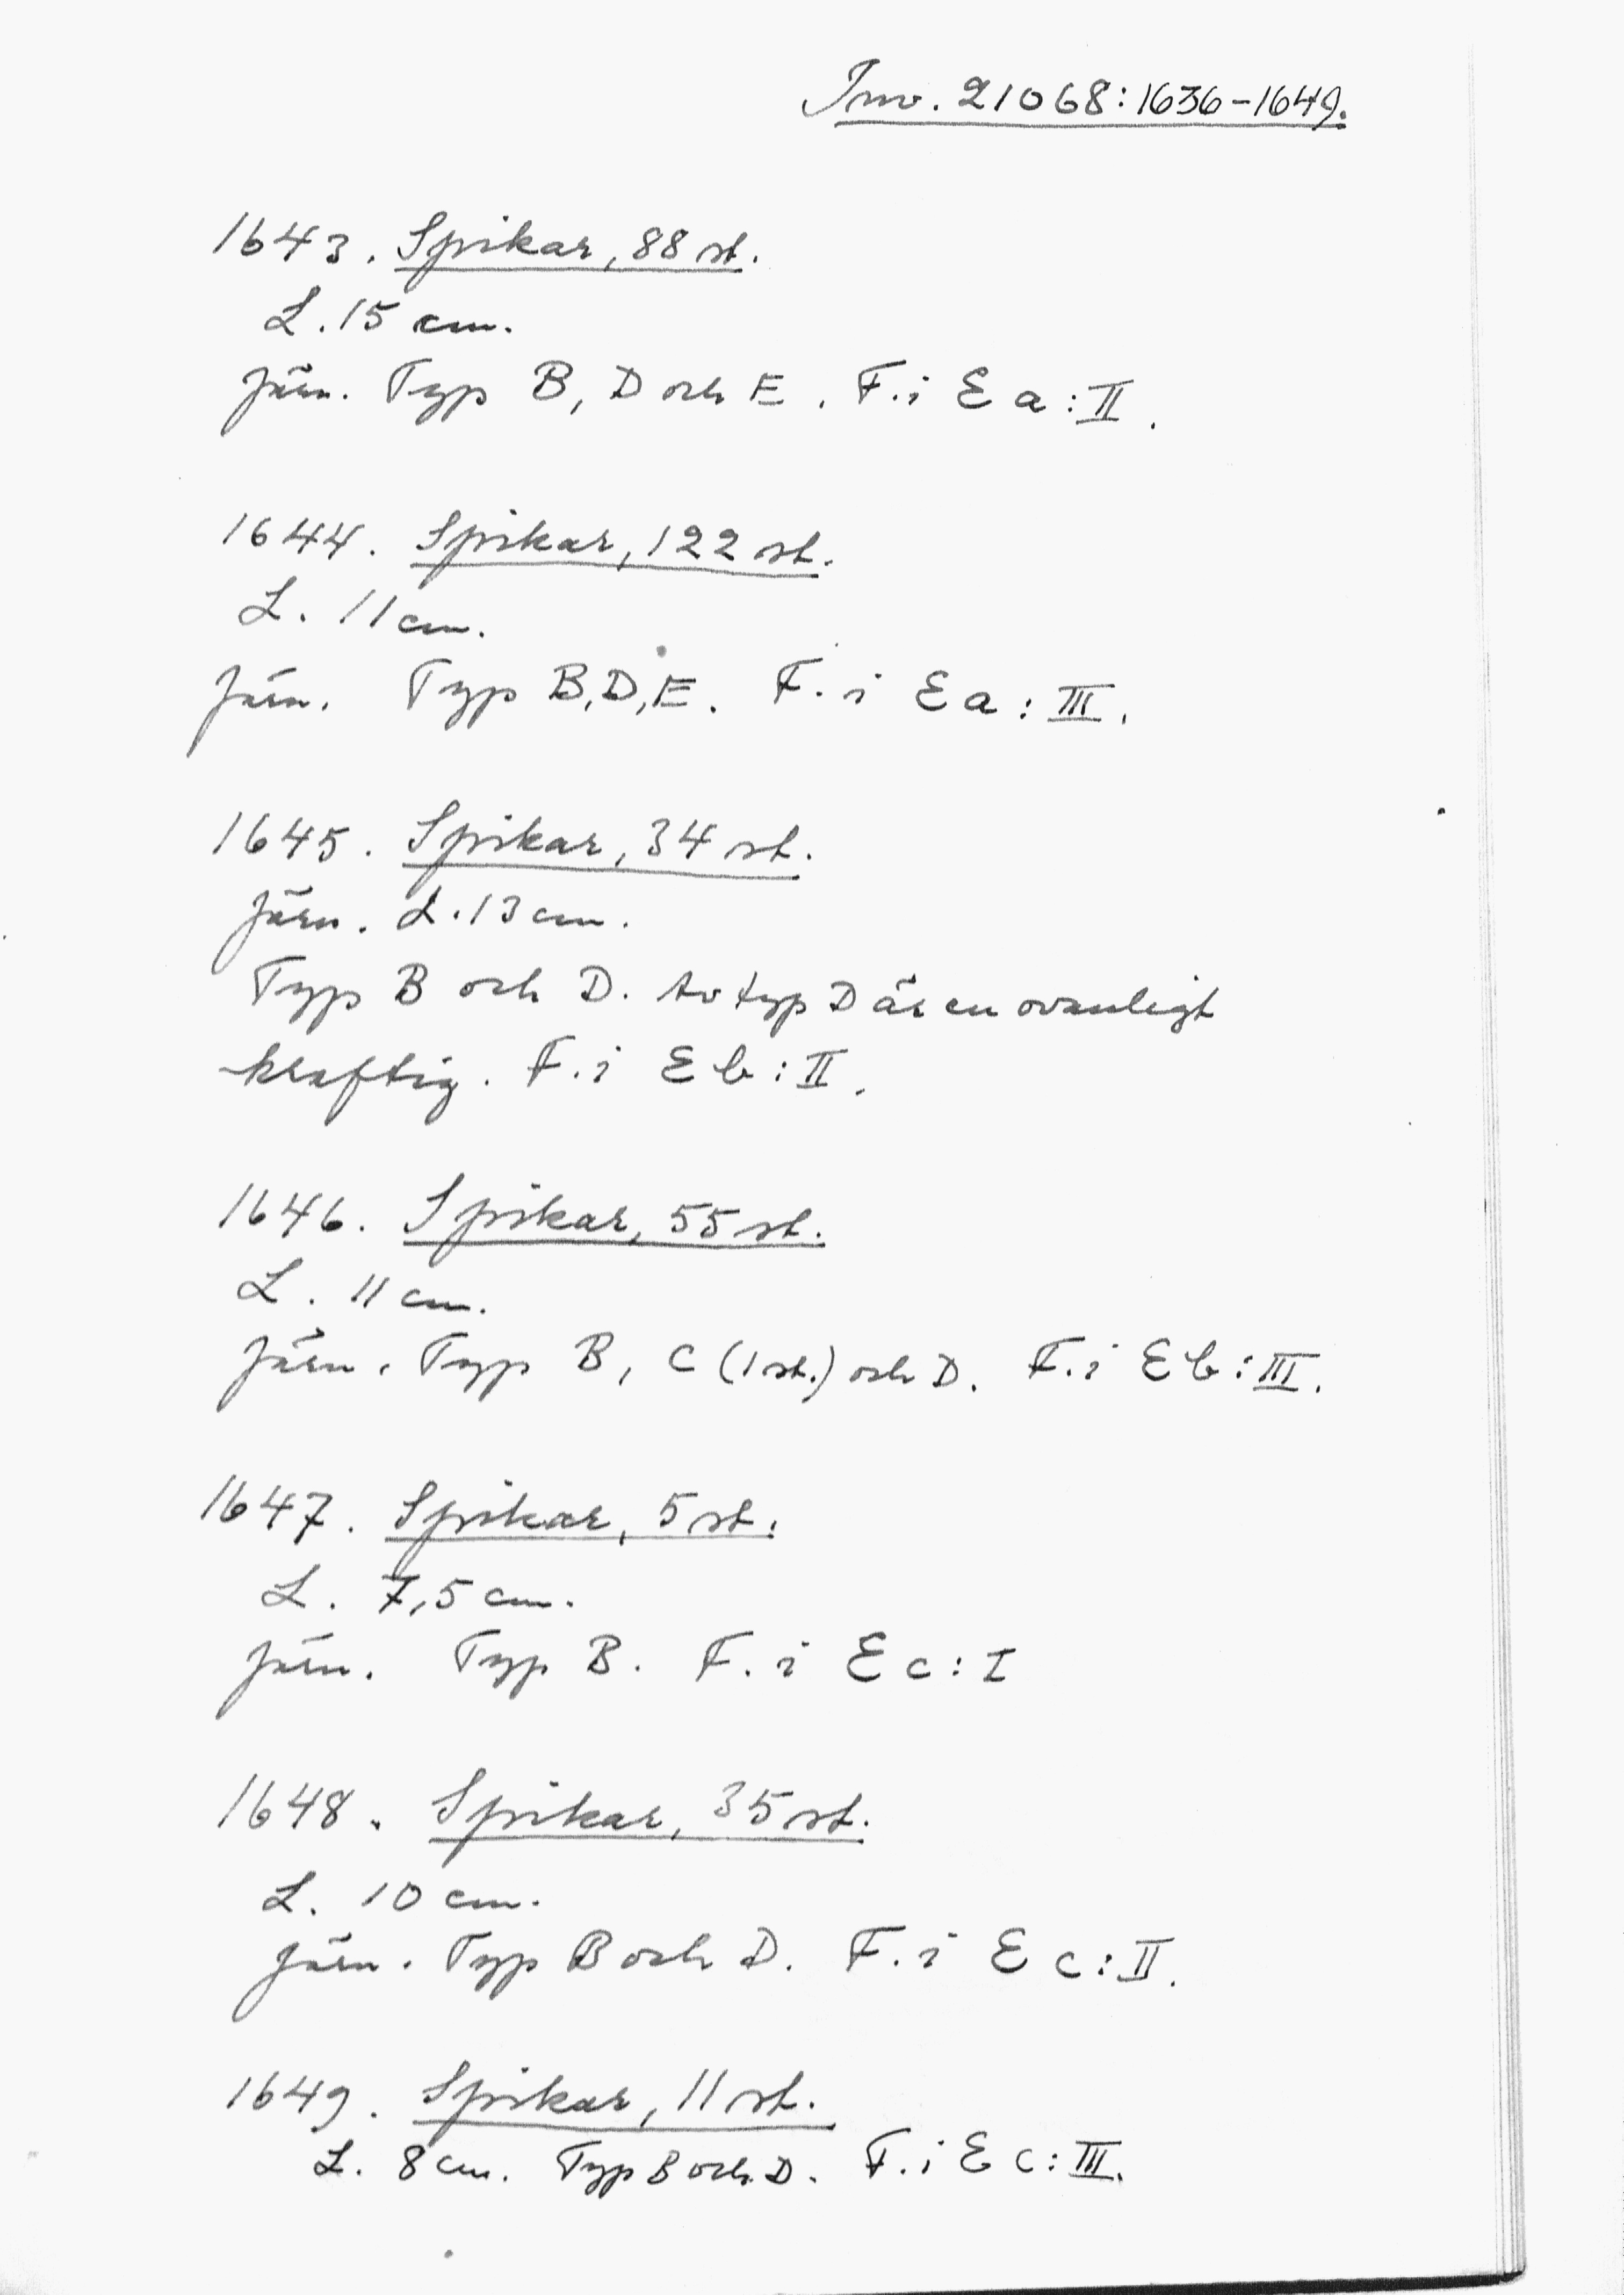 Inv. 21068:1636-1649.
1643. Spikar, 88 st.
L. 15 cm.
Järn. Typ B, D och E. F. i E a : II.
1644. Spikar, 122 st.
L. 11 cm.
Järn. Typ B, D, E. F. i E a : III.
1645. Spikar, 34 st.
Järn. L. 13 cm.
Typ B och D. Av typ D är en ovanligt
kraftig. F. i E b : II.
1646. Spikar, 55 st.
L. 11 cm.
Järn. Typ B, C (1 st.) och D. F. i E b : III.
1647. Spikar, 5 st.
L. 7,5 cm.
Järn. Typ B. F. i E c : I
1648. Spikar, 35 st.
L. 10 cm.
Järn. Typ B och D. F. i E c : II.
1649. Spikar, 11 st.
L. 8 cm. Typ B och D. F. i E c : III.